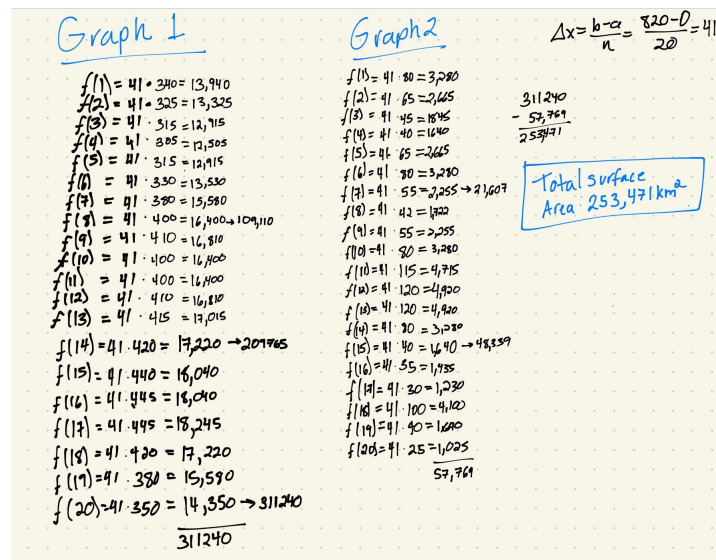 Graph 1
f(1) = 41 • 340 = 13,940
f(2) = 41 · 325 = 13,325
f(3) = 41 · 315 = 12,915
f(4) = 41 · 305 = 12,505
f(5) = 41 · 315 = 12,915
f(6) = 41 · 330 = 13,530
f(7) = 41 · 380 = 15,580
f(8) = 41 · 400 = 16,400 → 109,110
f(9) = 41 · 410 = 16,810
f(10) = 41 · 400 = 16,400
f(11) = 41 · 400 = 16,400
f(12) = 41 · 410 = 16,810
f(13) = 41 · 415 = 17,015
f(14) = 41 · 420 = 17,220 → 209765
f(15) = 41 · 440 = 18,040
f(16) = 41 · 445 = 18,040
f(17) = 41 · 445 = 18,245
f(18) = 41 · 420 = 17,220
f(19) = 41 · 380 = 15,580
f(20) = 41 · 350 = 14,350 → 311240
311240
Graph 2
f(1) = 41 · 80 = 3,280
f(2) = 41 · 65 = 2,665
f(3) = 41 · 45 = 1845
f(4) = 41 · 40 = 1640
f(5) = 41 · 65 = 2,665
f(6) = 41 · 80 = 3,280
f(7) = 41 · 55 = 2,255 → 21,607
f(8) = 41 · 42 = 1,722
f(9) = 41 · 55 = 2,255
f(10) = 41 · 80 = 3,280
f(11) = 41 · 115 = 4,715
f(12) = 41 · 120 = 4,920
f(13) = 41 · 120 = 4,920
f(14) = 41 · 80 = 3,280
f(15) = 41 · 40 = 1,640 → 48,339
f(16) = 41 · 35 = 1,435
f(17) = 41 · 30 = 1,230
f(18) = 41 · 100 = 4,100
f(19) = 41 · 40 = 1,640
f(20) = 41 · 25 = 1,025
57,769
Δx = b-a/n = 820-0/20 = 41
311240
- 57,769
253471
Total surface
Area: 253,471 km²